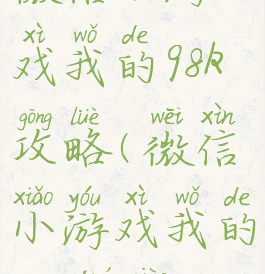 xì wǒ de
戏我的98k
gōng lüè wēi xìn
攻略(微信
xiǎo yóu xì wǒ de
小游戏我的